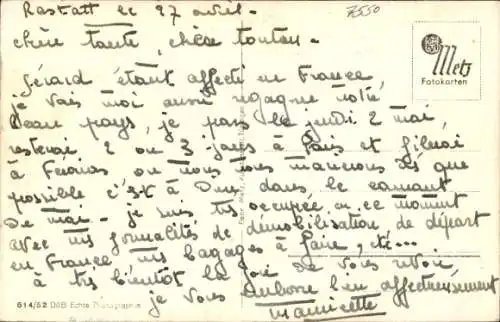 Rastatt le 27 avril -
7550
chère tante, chère tonton -
Metz
Fotokarten
Gérard étant affecté en France,
je vais moi aussi regagner notre
beau pays, je pars le jeudi 2 mai,
resterai 2 ou 3 jours à Paris et filerai
à où nous nous marierons dès que
possible c'est à Dire dans le courant
De mai - je suis très occupée en ce moment
avec mes formalités de démobilisation de départ
en France mes bagages à faire, etc...
à très bientôt la joie de vous revoir
je vous embrasse bien affectueusement
614/52 DßB Echte Photographie
Mamicette